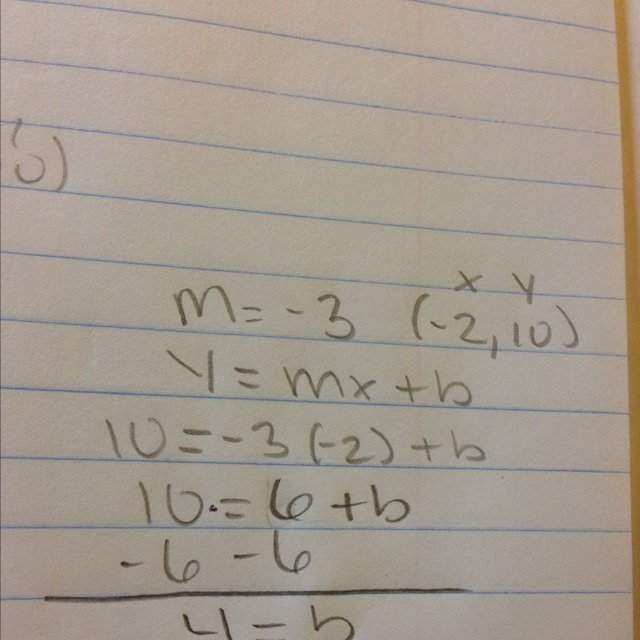 b)
x y
m = -3 (-2, 10)
y = mx + b
10 = -3(-2) + b
10 = 6 + b
-6 -6
4 = b